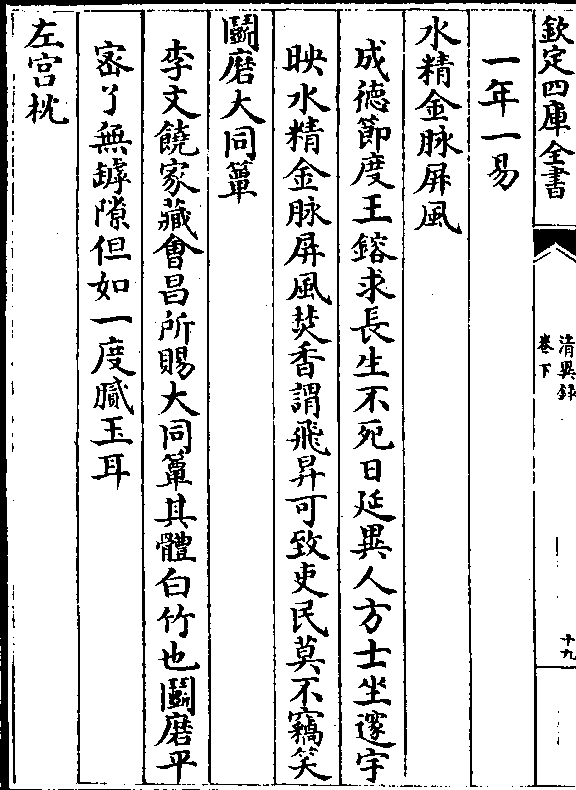 欽定四庫全書
清異録
卷下
十九
一年一易
水精金脉屏風
成德節度王鎔求長生不死日延異人方士坐邃宇
映水精金脉屏風焚香謂飛昇可致吏民莫不竊笑
鬭磨大同簟
李文饒家藏會昌所賜大同簟其體白竹也鬭磨平
宻了無罅隙但如一度膩玉耳
左宫枕